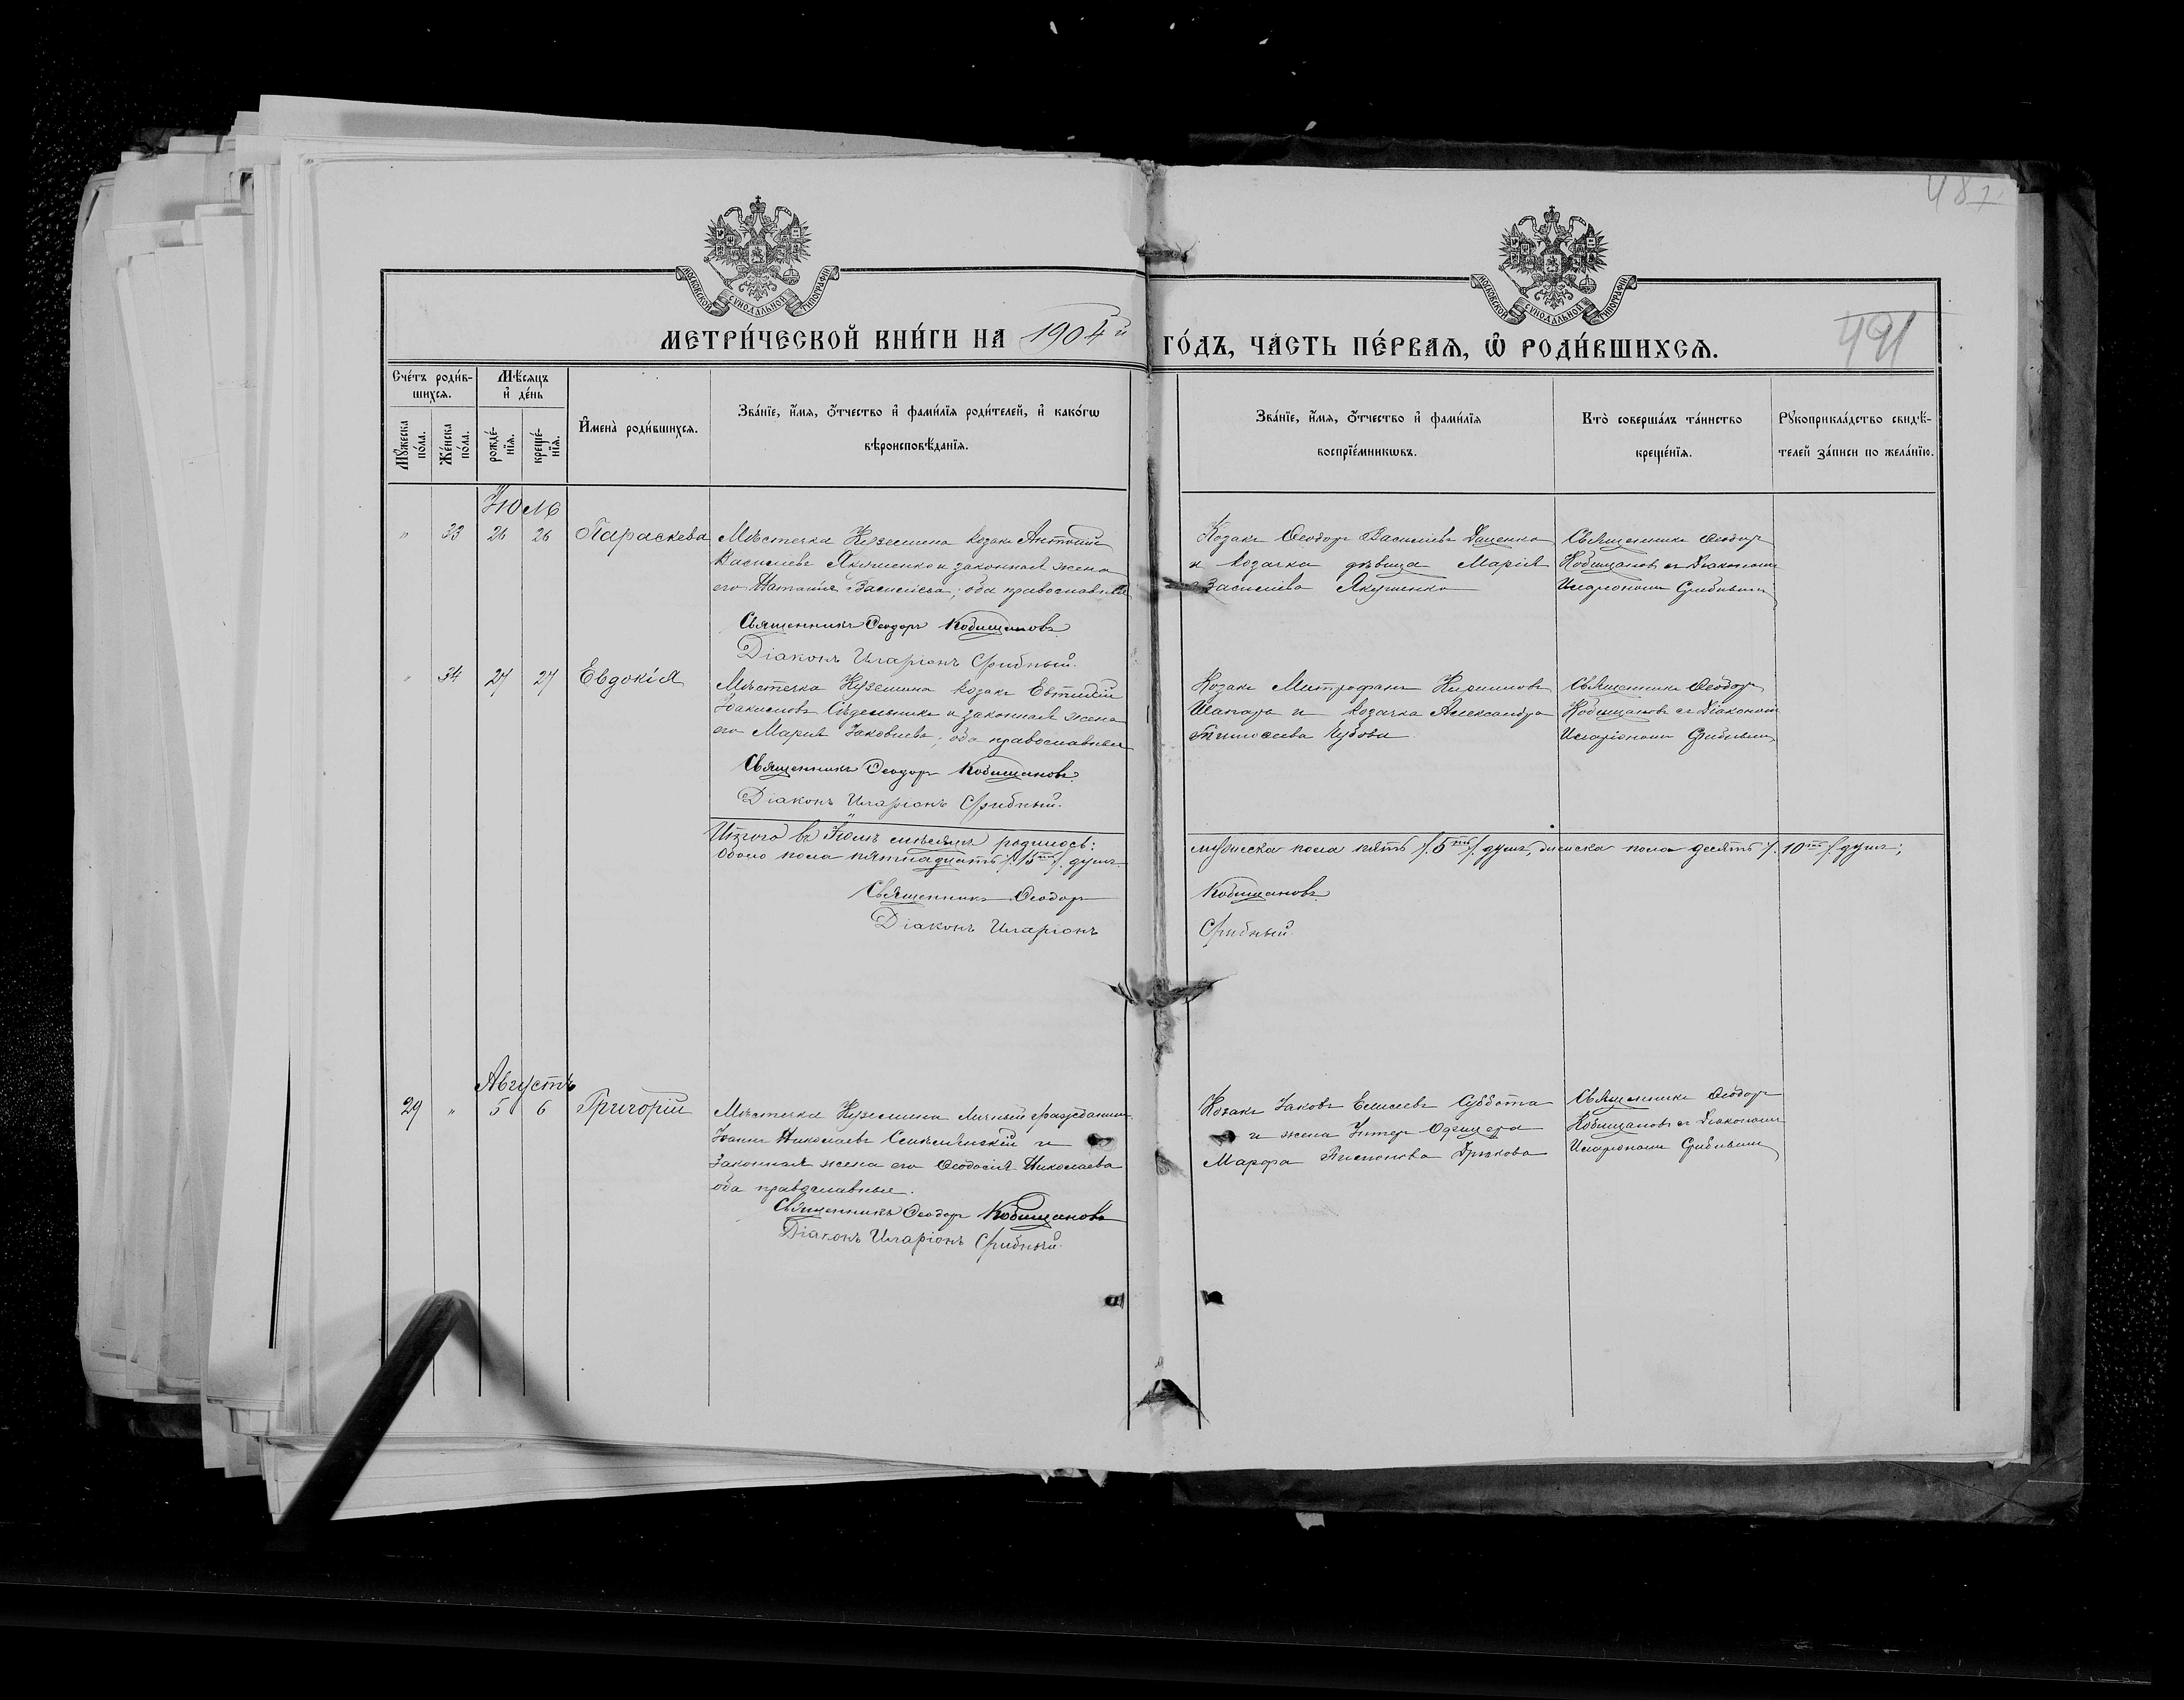 487
МОСКОВСКОЙ СУНОДАЛЬНОЙ ТИПОГРАФІИ
МОСКОВСКОЙ СУНОДАЛЬНОЙ ТИПОГРАФІИ
МЕТРИ́ЧЕСКОЙ КНИ́ГИ НА 1904й ГО́ДЪ, ЧА́СТЬ ПЕ́РВАЯ, Ѡ РОДИ́ВШИХСЯ.
491
Сче́тъ роди́в-
шихся.
Му́жеска по́ла.
Же́нска по́ла.
Мѣ́сяцъ
и де́нь
рожде́-
нія.
креще́-
нія.
Имена̀ роди́вшихся.
Зва́ніе, и́мя, о́тчество и фами́лія роди́телей, и како́гѡ
вѣроисповѣ́данія.
Зва́ніе, и́мя, о́тчество и фами́лія
воспріе́мникѡвъ.
Кто̀ соверша́лъ та́инство
креще́нія.
Рукоприкла́дство свидѣ́-
телей за́писи по жела́нію.
Іюль
" 33 26 26 Параскева
Мѣстечка Куземина козакъ Антоній
Василіевъ Якименко и законная жена
его Наталія Василіева; оба православные
Священникъ Ѳеодоръ Кобищановъ
Діаконъ Иларіонъ Срибный.
Козакъ Ѳеодоръ Василіевъ Даценко
и козачка дѣвица Марія
Василіева Якименко
Священникъ Ѳеодоръ
Кобищановъ съ Діакономъ
Иларіономъ Срибнымъ
" 34 27 27 Евдокія
Мѣстечка Куземина козакъ Евтихій
Іоакимовъ Сѣдельникъ и законная жена
его Марія Іаковлева; оба православные
Священникъ Ѳеодоръ Кобищановъ
Діаконъ Иларіонъ Срибный.
Козакъ Митрофанъ Кирилловъ
Шапарь и козачка Александра
Тимоѳеева Чубова
Священникъ Ѳеодоръ
Кобищановъ съ Діакономъ
Иларіономъ Срибнымъ
Итого въ Іюлѣ мѣсяцѣ родилось: мужеска пола пять /.5ть/. душъ, женска пола десять /.10ть/. душъ;
Обоего пола пятнадцать /.15ть/. душъ.
Священникъ Ѳеодоръ Кобищановъ
Діаконъ Иларіонъ Срибный.
Августъ
29 " 5 6 Григорій
Мѣстечка Куземина личный гражданинъ
Іоаннъ Николаевъ и
законная жена его Ѳеодосія Николаева
оба православные.
Священникъ Ѳеодоръ Кобищановъ
Діаконъ Иларіонъ Срибный.
Козакъ Іаковъ Елисеевъ Суббота
и жена Унтеръ Офицера
Марѳа
Священникъ Ѳеодоръ
Кобищановъ съ Діакономъ
Иларіономъ Срибнымъ